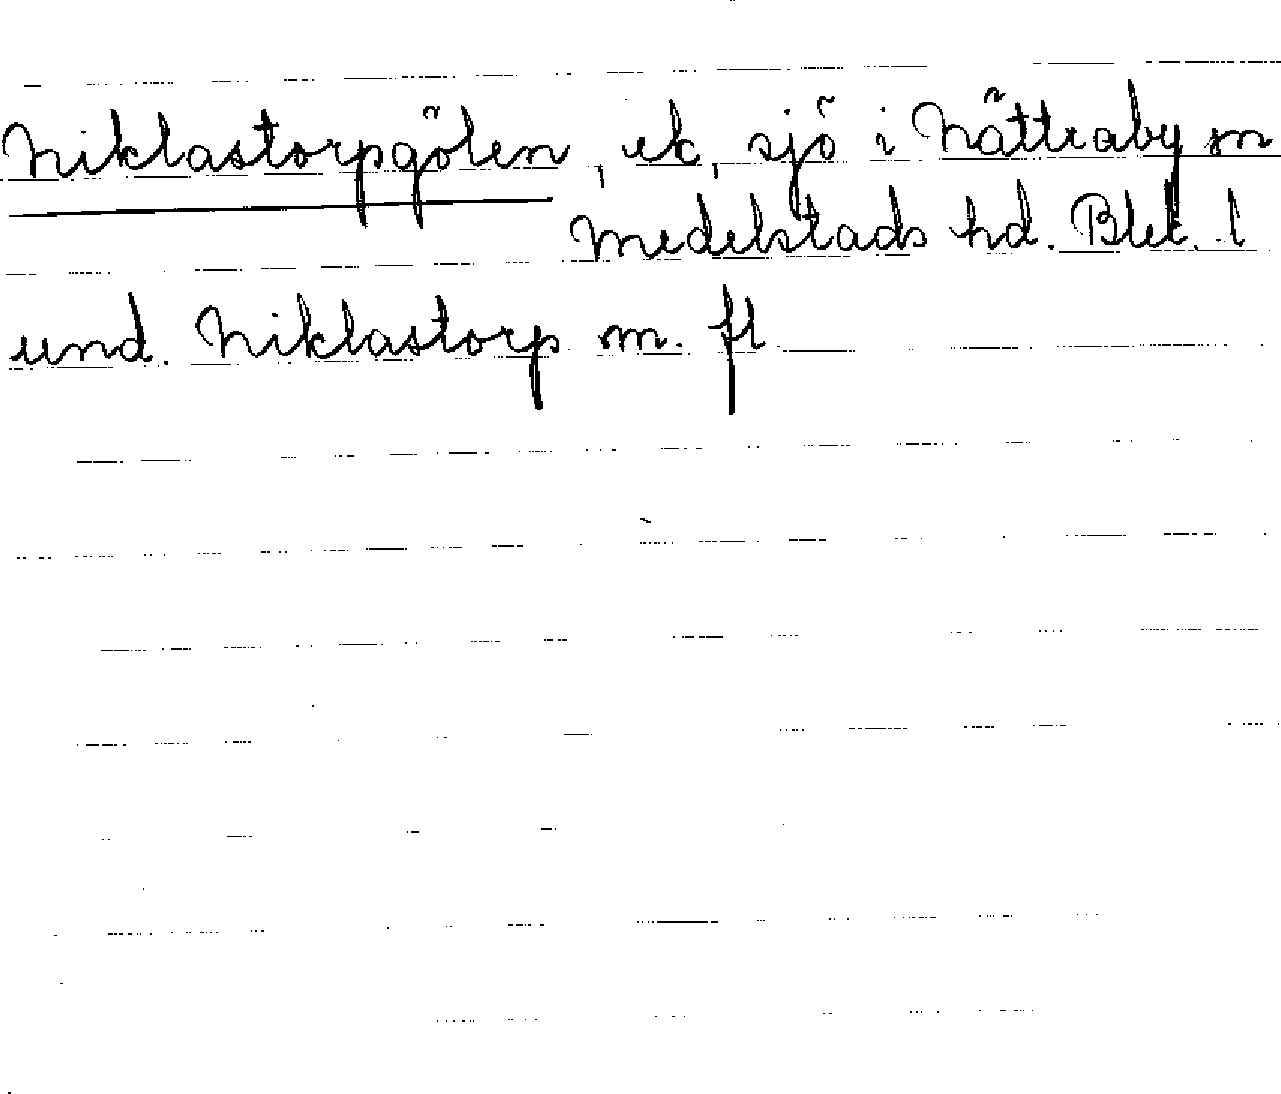 Niklastorpgölen, ek, sjö i Nättraby sn
Medelstads hd. Blek. l
und. Niklastorp m. fl